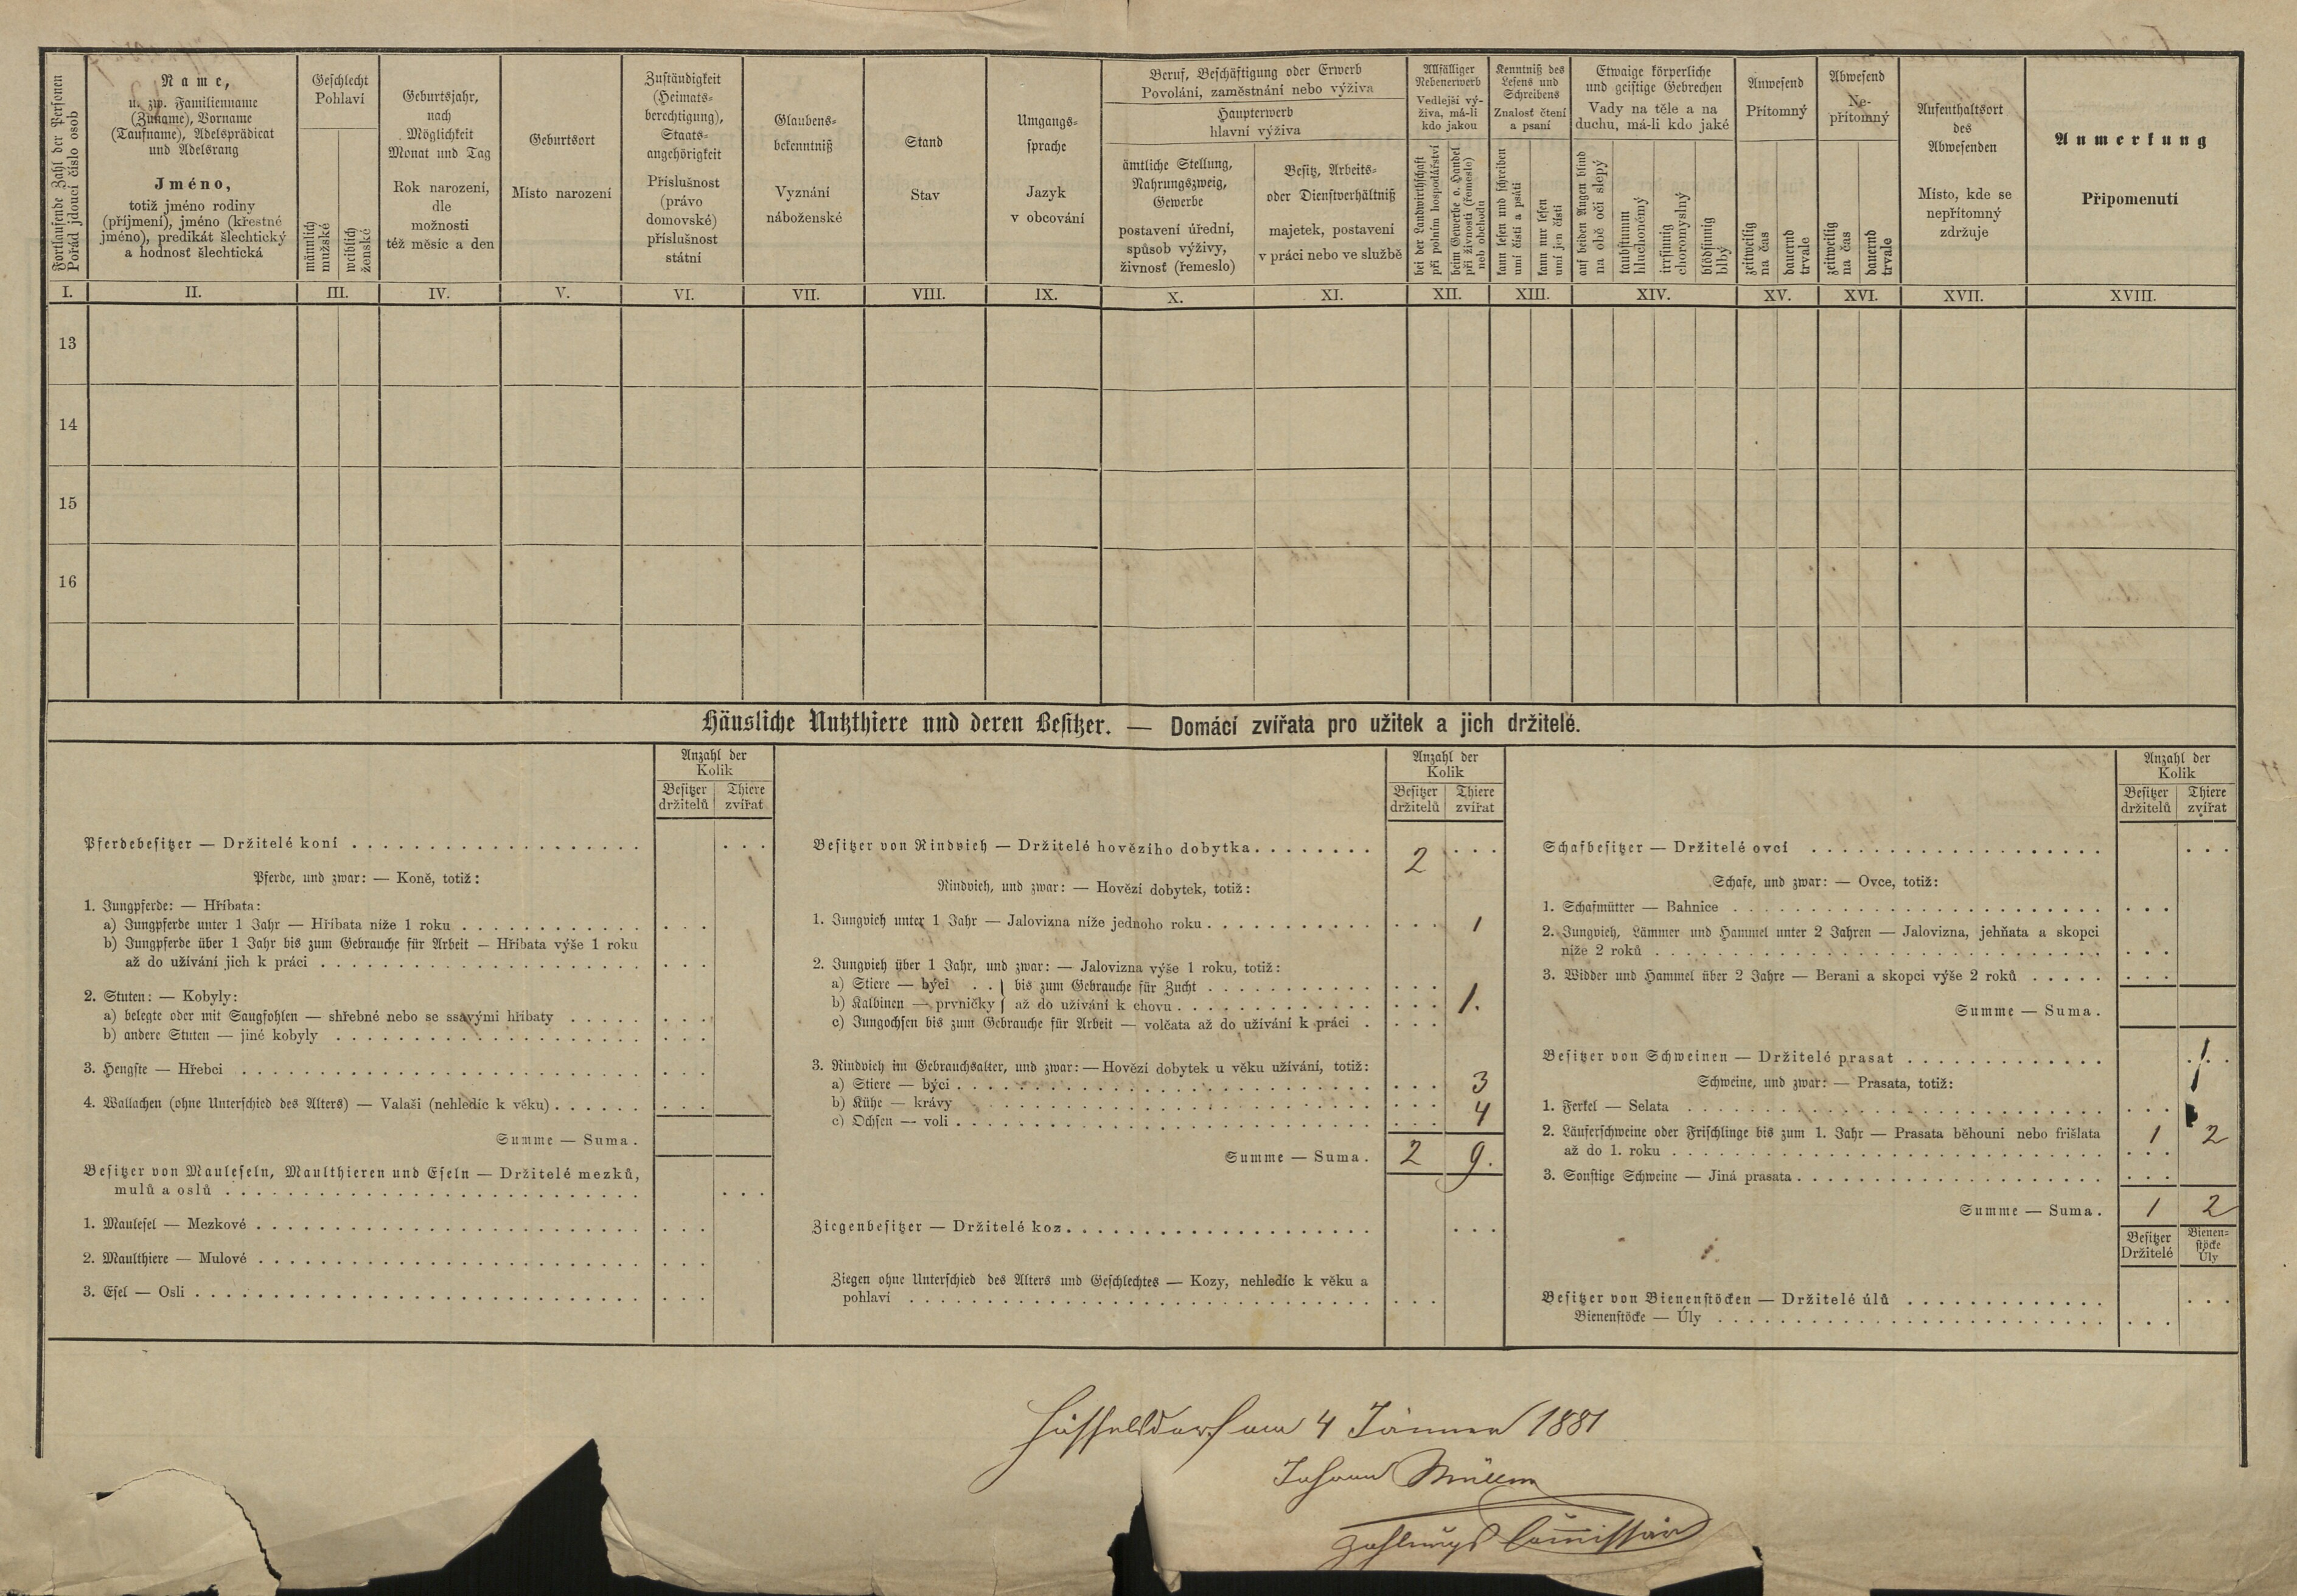 Fortlaufende Zahl der Personen
Pořád jdoucí číslo osob
Name,
u. zw. Familienname
(Zuname), Vorname
(Taufname), Adelsprädicat
und Adelsrang
Jméno,
totiž jméno rodiny
(příjmení), jméno (křestné
jméno), predikát šlechtický
a hodnosť šlechtická
Geschlecht
Pohlaví
männlich
mužské
weiblich
ženské
Geburtsjahr,
nach
Möglichkeit
Monat und Tag
Rok narození,
dle
možnosti
též měsíc a den
Geburtsort
Místo narození
Zuständigkeit
(Heimats-
berechtigung),
Staats-
angehörigkeit
Příslušnost
(právo
domovské)
příslušnost
státní
Glaubens-
bekenntniß
Vyznání
náboženské
Stand
Stav
Umgangs-
sprache
Jazyk
v obcování
Beruf, Beschäftigung oder Erwerb
Povolání, zaměstnání nebo výživa
Haupterwerb
hlavní výživa
ämtliche Stellung,
Nahrungszweig,
Gewerbe
postavení úřední,
spůsob výživy,
živnosť (řemeslo)
Besitz, Arbeits-
oder Dienstverhältniß
majetek, postavení
v práci nebo ve službě
Allfälliger
Nebenerwerb
Vedlejší vý-
živa, má-li
kdo jakou
bei der Landwirthschaft
při polním hospodářství
beim Gewerbe o. Handel
při živnosti (řemeslo)
neb obchodu
Kenntniß des
Lesens und
Schreibens
Znalosť čtení
a psaní
kann lesen und schreiben
umí čísti a psáti
kann nur lesen
umí jen čísti
Etwaige körperliche
und geistige Gebrechen
Vady na těle a na
duchu, má-li kdo jaké
auf beiden Augen blind
na obě oči slepý
taubstumm
hluchoněmý
irrsinnig
choromyslný
blödsinnig
blbý
Anwesend
Přítomný
zeitweilig
na čas
dauernd
trvale
Abwesend
Ne-
přítomný
zeitweilig
na čas
dauernd
trvale
Aufenthaltsort
des
Abwesenden
Místo, kde se
nepřítomný
zdržuje
Anmerkung
Připomenutí
I. II. III. IV. V. VI. VII. VIII. IX. X. XI. XII. XIII. XIV. XV. XVI. XVII. XVIII.
13
14
15
16
Häusliche Nutzthiere und deren Besitzer. — Domácí zvířata pro užitek a jich držitelé.
Anzahl der
Kolik
Besitzer Thiere
držitelů zvířat
Pferdebesitzer — Držitelé koní
Pferde, und zwar: — Koně, totiž:
1. Jungpferde: — Hříbata:
a) Jungpferde unter 1 Jahr — Hříbata níže 1 roku
b) Jungpferde über 1 Jahr bis zum Gebrauche für Arbeit — Hříbata výše 1 roku
až do užívání jich k práci
2. Stuten: — Kobyly:
a) belegte oder mit Saugfohlen — shřebné nebo se ssavými hříbaty
b) andere Stuten — jiné kobyly
3. Hengste — Hřebci
4. Wallachen (ohne Unterschied des Alters) — Valaši (nehledíc k věku)
Summe — Suma.
Besitzer von Mauleseln, Maulthieren und Eseln — Držitelé mezků,
mulů a oslů
1. Maulesel — Mezkové
2. Maulthiere — Mulové
3. Esel — Osli
Anzahl der
Kolik
Besitzer Thiere
držitelů zvířat
Besitzer von Rindvieh — Držitelé hovězího dobytka 2
Rindvieh, und zwar: — Hovězí dobytek, totiž:
1. Jungvieh unter 1 Jahr — Jalovizna níže jednoho roku 1
2. Jungvieh über 1 Jahr, und zwar: — Jalovizna výše 1 roku, totiž:
a) Stiere — býci } bis zum Gebrauche für Zucht
b) Kalbinen — prvničky } až do užívání k chovu 1.
c) Jungochsen bis zum Gebrauche für Arbeit — volčata až do užívání k práci
3. Rindvieh im Gebrauchsalter, und zwar: — Hovězí dobytek u věku užívání, totiž:
a) Stiere — býci 3
b) Kühe — krávy 4
c) Ochsen — voli
Summe — Suma. 2 9.
Ziegenbesitzer — Držitelé koz
Ziegen ohne Unterschied des Alters und Geschlechtes — Kozy, nehledíc k věku a
pohlaví
Anzahl der
Kolik
Besitzer Thiere
držitelů zvířat
Schafbesitzer — Držitelé ovcí
Schafe, und zwar: — Ovce, totiž:
1. Schafmütter — Bahnice
2. Jungvieh, Lämmer und Hammel unter 2 Jahren — Jalovizna, jehňata a skopci
níže 2 roků
3. Widder und Hammel über 2 Jahre — Berani a skopci výše 2 roků
Summe — Suma.
Besitzer von Schweinen — Držitelé prasat 1
Schweine, und zwar: — Prasata, totiž:
1. Ferkel — Selata
2. Läuferschweine oder Frischlinge bis zum 1. Jahr — Prasata běhouni nebo frišlata 1 2
až do 1. roku
3. Sonstige Schweine — Jiná prasata
Summe — Suma. 1 2
Besitzer Bienen-
Držitelé stöcke
Úly
Besitzer von Bienenstöcken — Držitelé úlů
Bienenstöcke — Úly
am 4 Jänner 1881
Johann Müller
Zahlungs Commissär